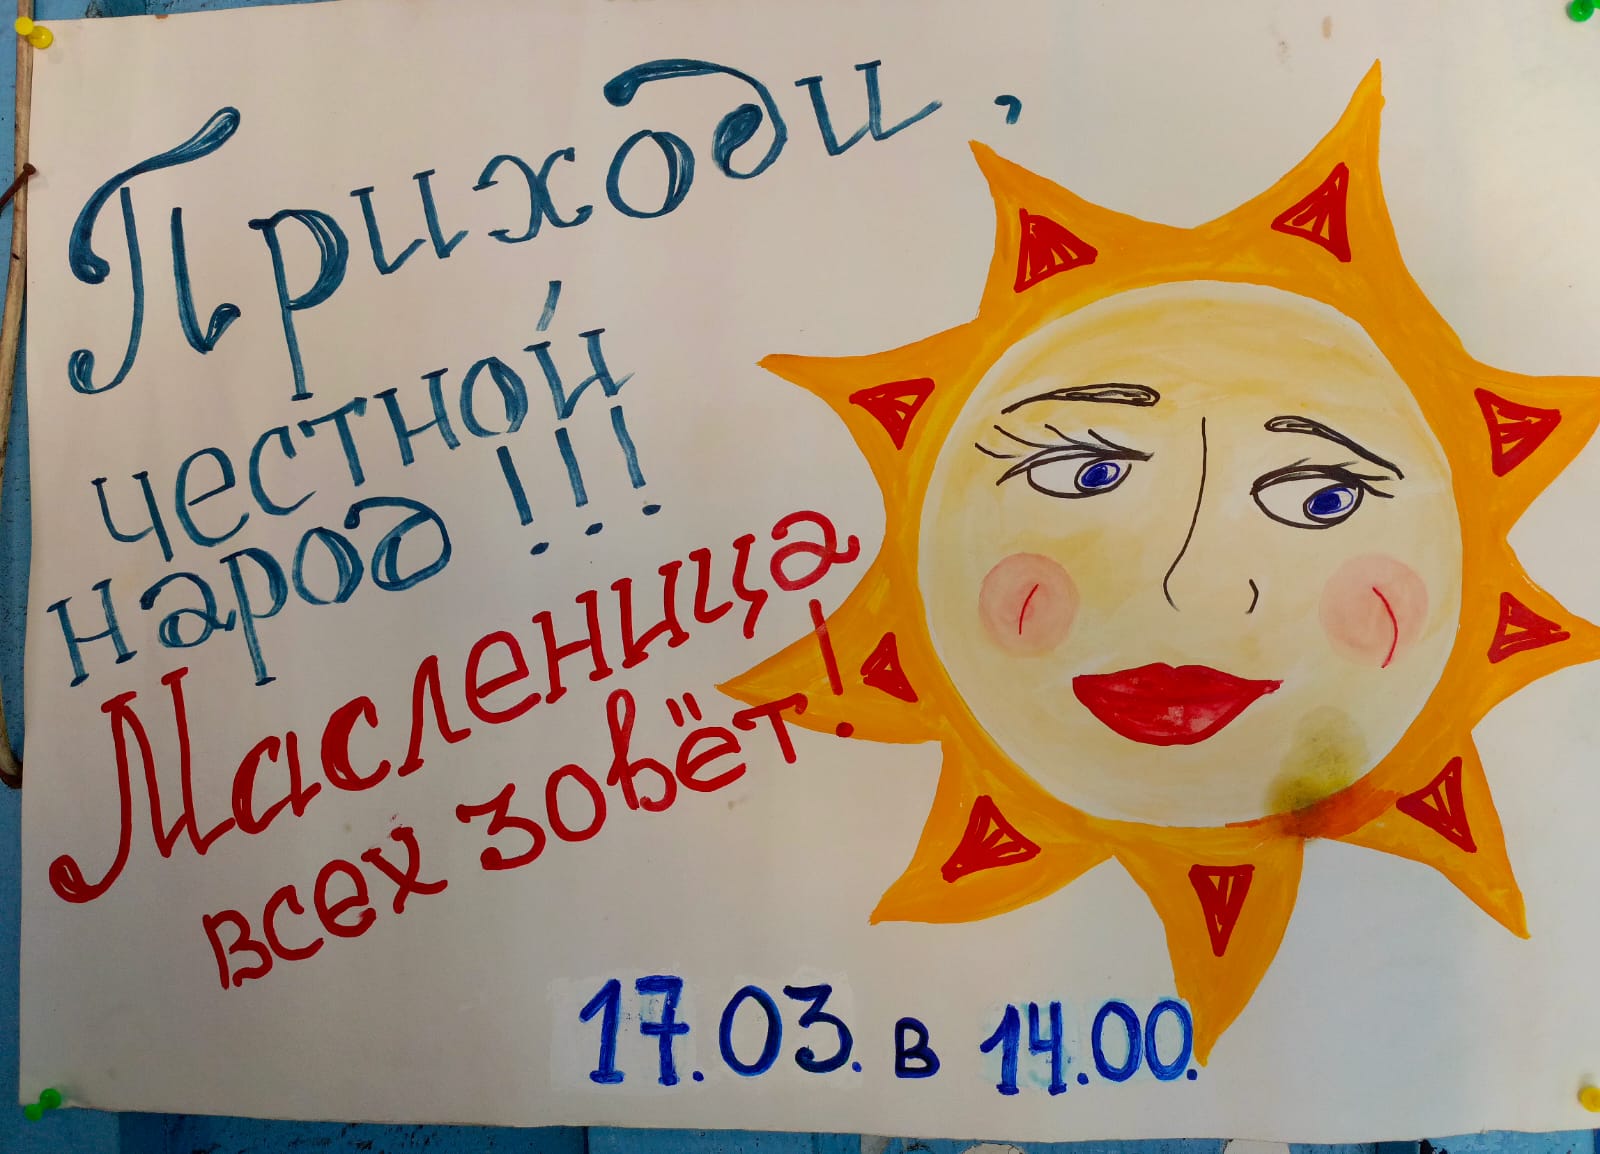 Приходи,
честной
народ!!!
Масленица
всех зовёт!
17.03. в 14.00.